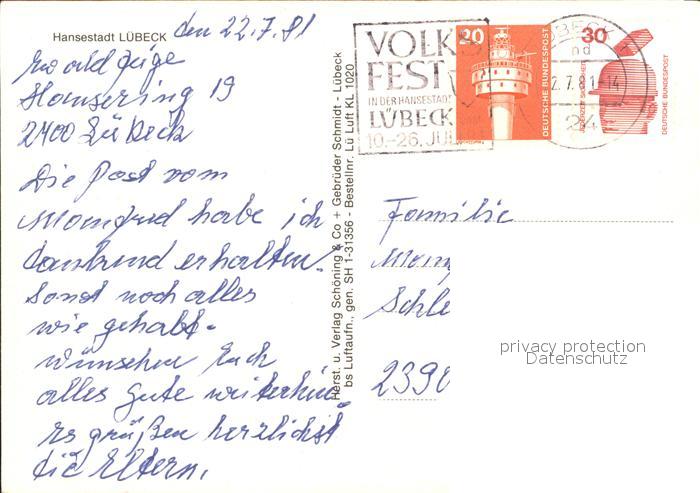 Hansestadt LÜBECK den 22.7.81
Ewald Jüge
Hansering 19
2400 Lübeck
Die Post vom
Manfred habe ich
dankend erhalten.
Sonst noch alles
wie gehabt.
wünschen Euch
alles Gute weiterhin.
Es grüßen herzlichst
die Eltern.
Herst. u. Verlag Schöning & Co + Gebrüder Schmidt - Lübeck
bs Luftaufn., gen. SH 1-31356 - Bestellnr. Lü Luft KL 1020
VOLKS
FEST
IN DER HANSESTADT
LÜBECK
10.-26. JULI
20
DEUTSCHE BUNDESPOST
30
DEUTSCHE BUNDESPOST
LÜBECK 1
nd
22.7.81-14
24
Familie
Schle
2390
privacy protection
Datenschutz